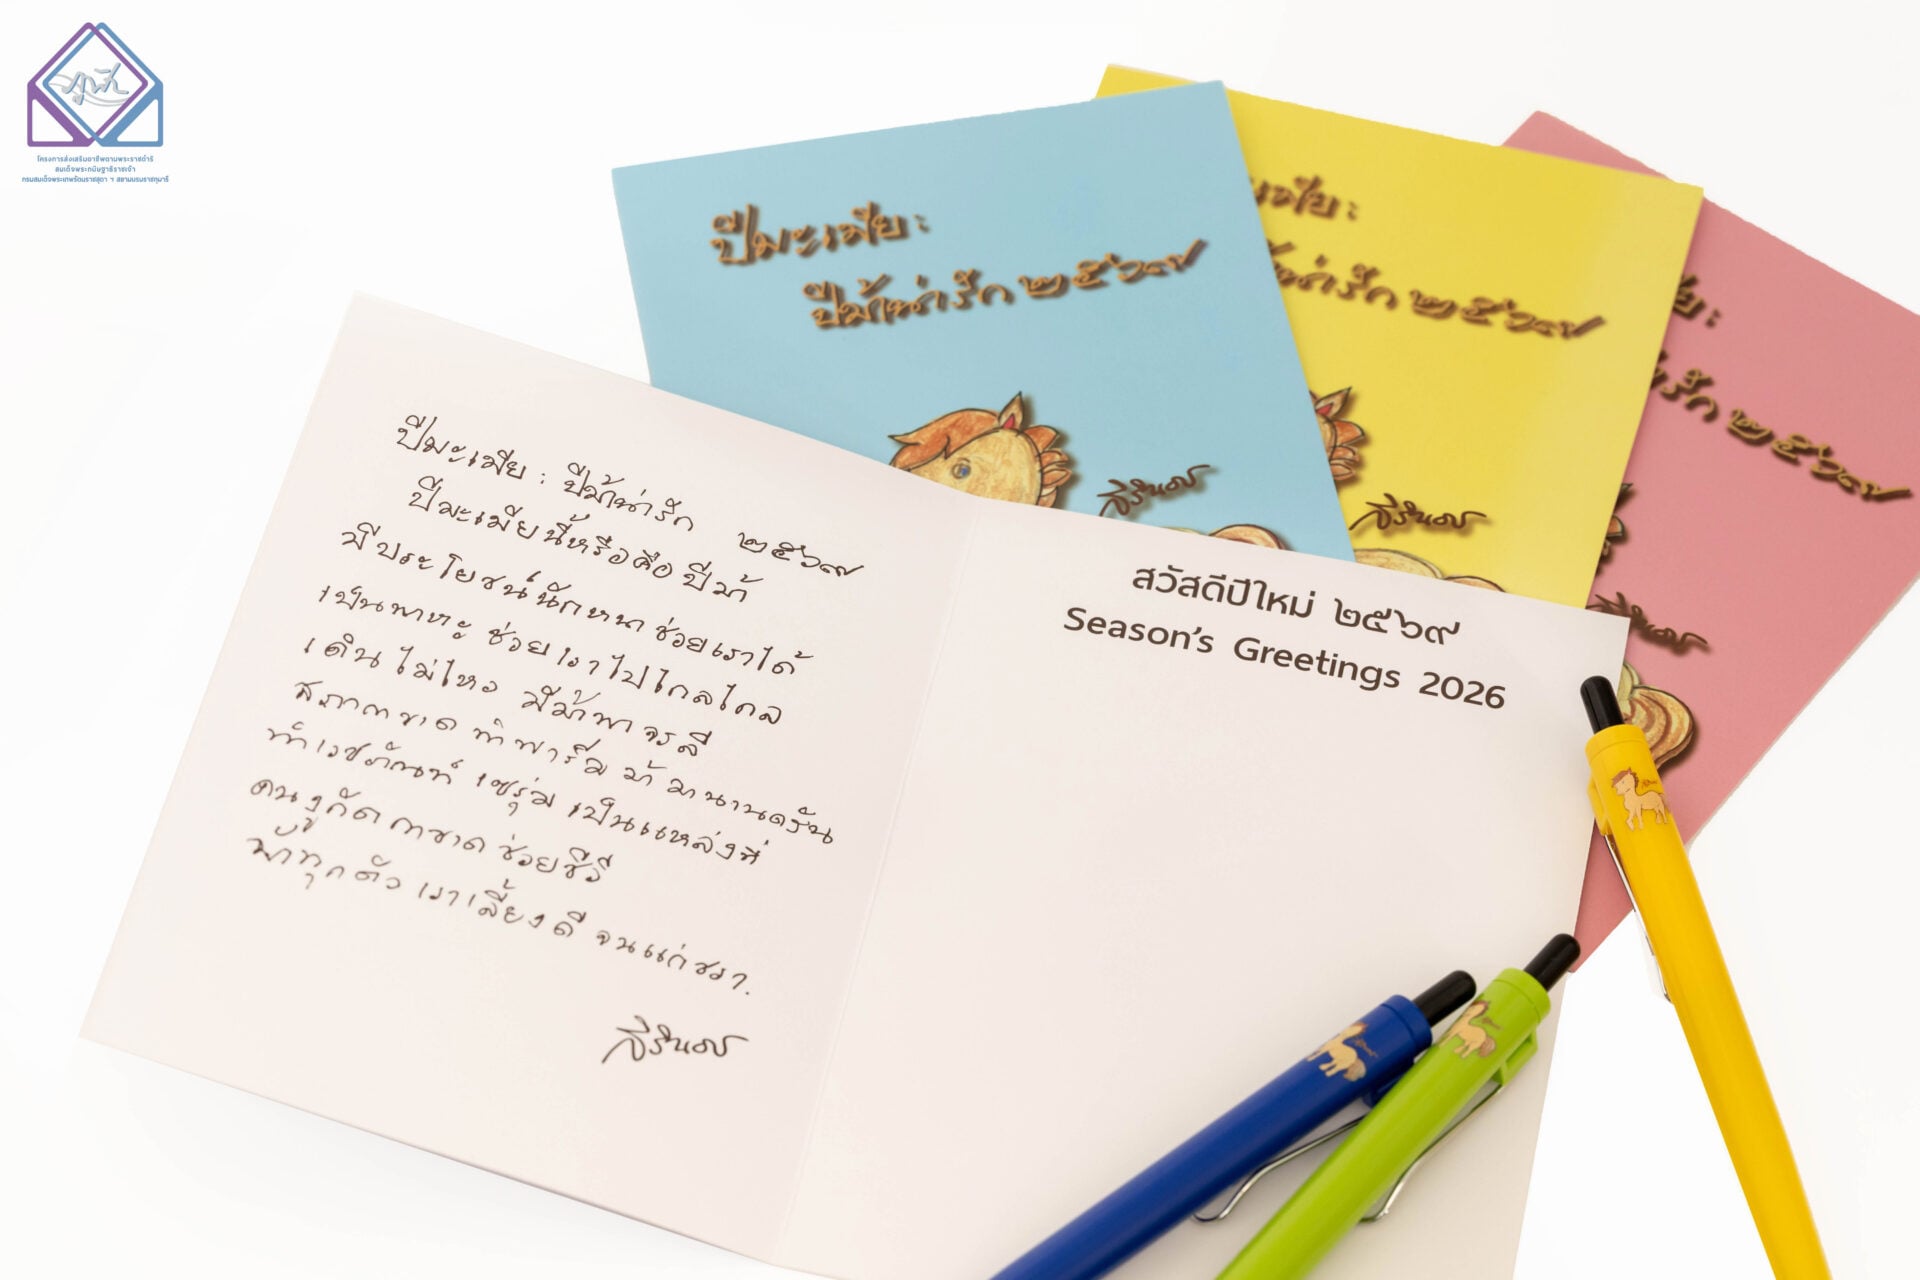 ภูฟ้า
โครงการส่งเสริมอาชีพตามพระราชดำริ
สมเด็จพระกนิษฐาธิราชเจ้า
กรมสมเด็จพระเทพรัตนราชสุดา ฯ สยามบรมราชกุมารี
ปีมะเมีย :
ปีม้าน่ารัก ๒๕๖๙
สิรินธร
นเมีย :
น่ารัก ๒๕๖๙
สิรินธร
ย :
รัก ๒๕๖๙
สิรินธร
ปีมะเมีย : ปีม้าน่ารัก ๒๕๖๙
ปีมะเมียนี้หรือคือปีม้า
มีประโยชน์นักหนาช่วยเราได้
เป็นพาหะช่วยเราไปไกลไกล
เดินไม่ไหวมีม้าพาจรลี
สภากาชาดทำฟาร์มม้ามานานครัน
ทำเวชภัณฑ์เซรุ่มเป็นแหล่งที่
คนงูกัดกาชาดช่วยชีวี
ม้าทุกตัวเราเลี้ยงดีจนแก่ชรา.
สิรินธร
สวัสดีปีใหม่ ๒๕๖๙
Season's Greetings 2026